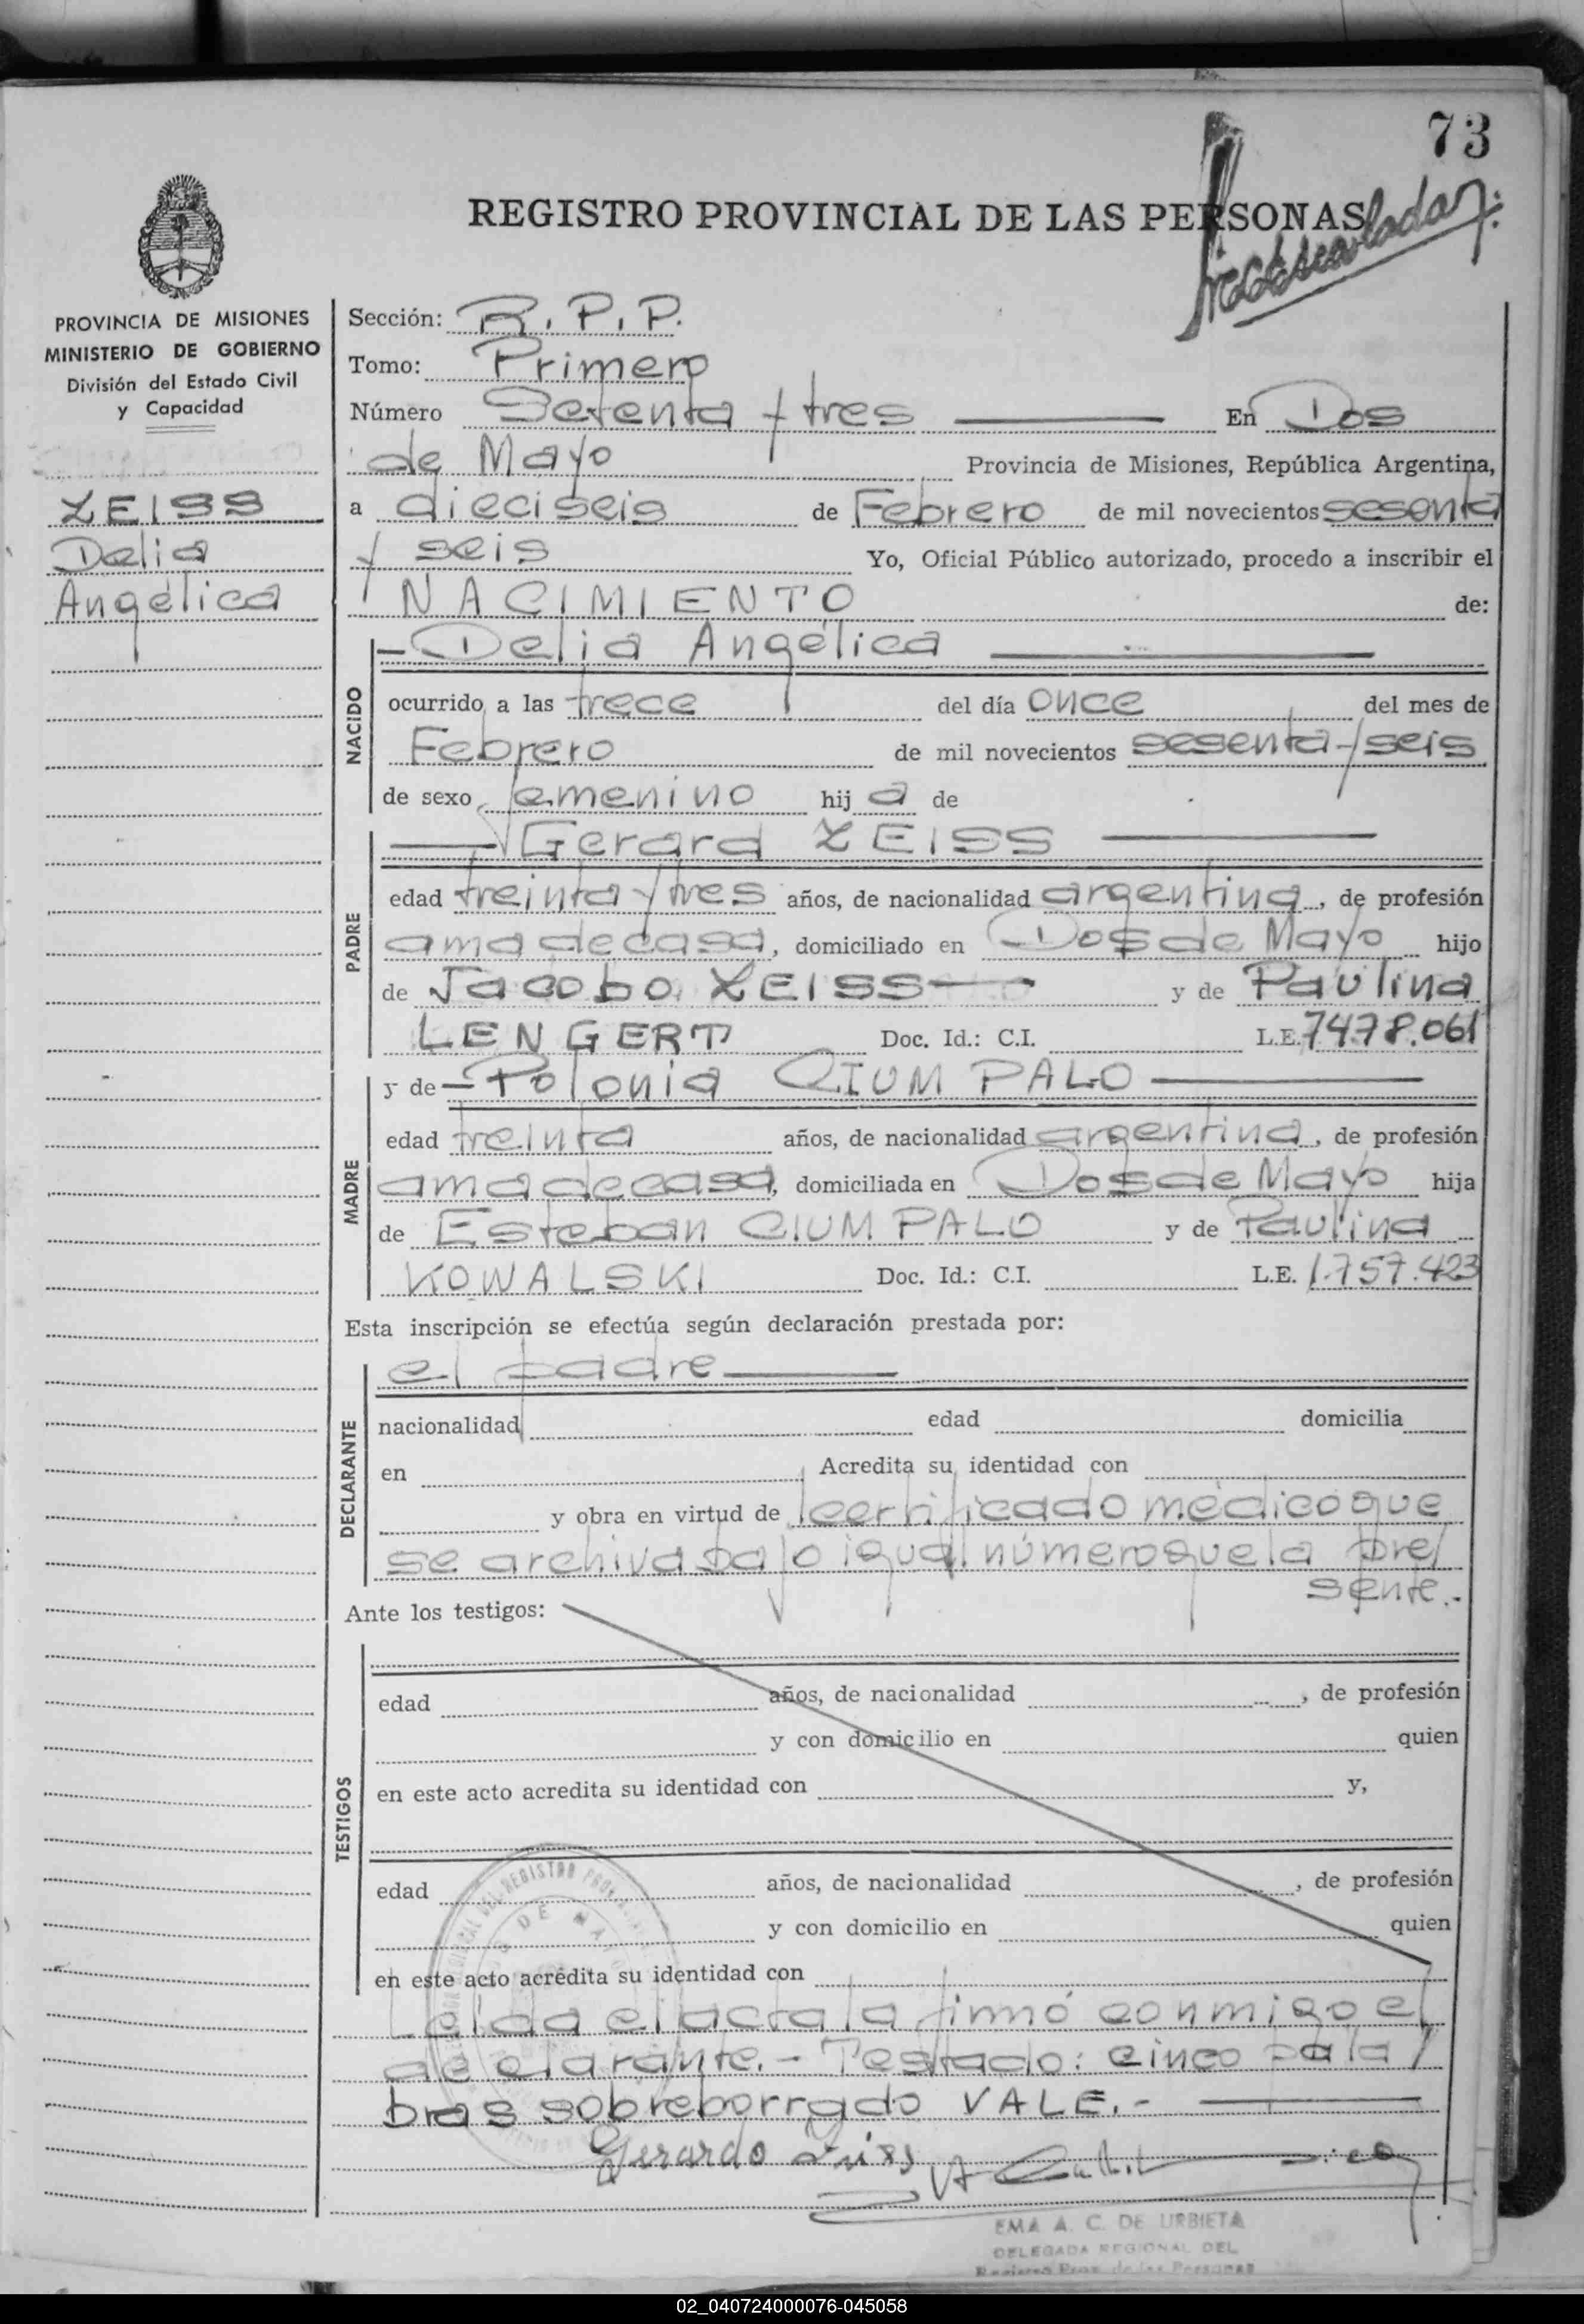 73
REGISTRO PROVINCIAL DE LAS PERSONAS
PROVINCIA DE MISIONES
MINISTERIO DE GOBIERNO
División del Estado Civil
y Capacidad
ZEISS
Delia
Angélica
Sección: R.P.P.
Tomo: Primero
Número Setenta y tres En Dos
de Mayo Provincia de Misiones, República Argentina,
a dieciseis de Febrero de mil novecientos sesenta
y seis Yo, Oficial Público autorizado, procedo a inscribir el
NACIMIENTO de:
NACIDO
- Delia Angélica
ocurrido a las trece del día once del mes de
Febrero de mil novecientos sesenta y seis
de sexo femenino hij a de
PADRE
Gerard ZEISS
edad treinta y tres años, de nacionalidad argentina, de profesión
ama de casa, domiciliado en Dos de Mayo hijo
de Jacobo ZEISS y de Paulina
LENGERT Doc. Id.: C.I. L.E. 7478.061
MADRE
y de - Polonia CIUMPALO
edad treinta años, de nacionalidad argentina, de profesión
ama de casa, domiciliada en Dos de Mayo hija
de Esteban CIUMPALO y de Paulina
KOWALSKI Doc. Id.: C.I. L.E. 1.757.423
Esta inscripción se efectúa según declaración prestada por:
DECLARANTE
el padre
nacionalidad edad domicilia
en Acredita su identidad con
y obra en virtud de certificado médico que
se archiva bajo igual número que la pre/
sente.-
Ante los testigos:
TESTIGOS
edad años, de nacionalidad , de profesión
y con domicilio en quien
en este acto acredita su identidad con y,
edad años, de nacionalidad , de profesión
y con domicilio en quien
en este acto acredita su identidad con
Leída el acta la firmó conmigo el
declarante.- Testado: cinco pala/
bras sobreborrado VALE.-
Gerardo Zeiss
EMA A. C. DE URBIETA
DELEGADA REGIONAL DEL
Registro Prov. de las Personas
02_040724000076-045058